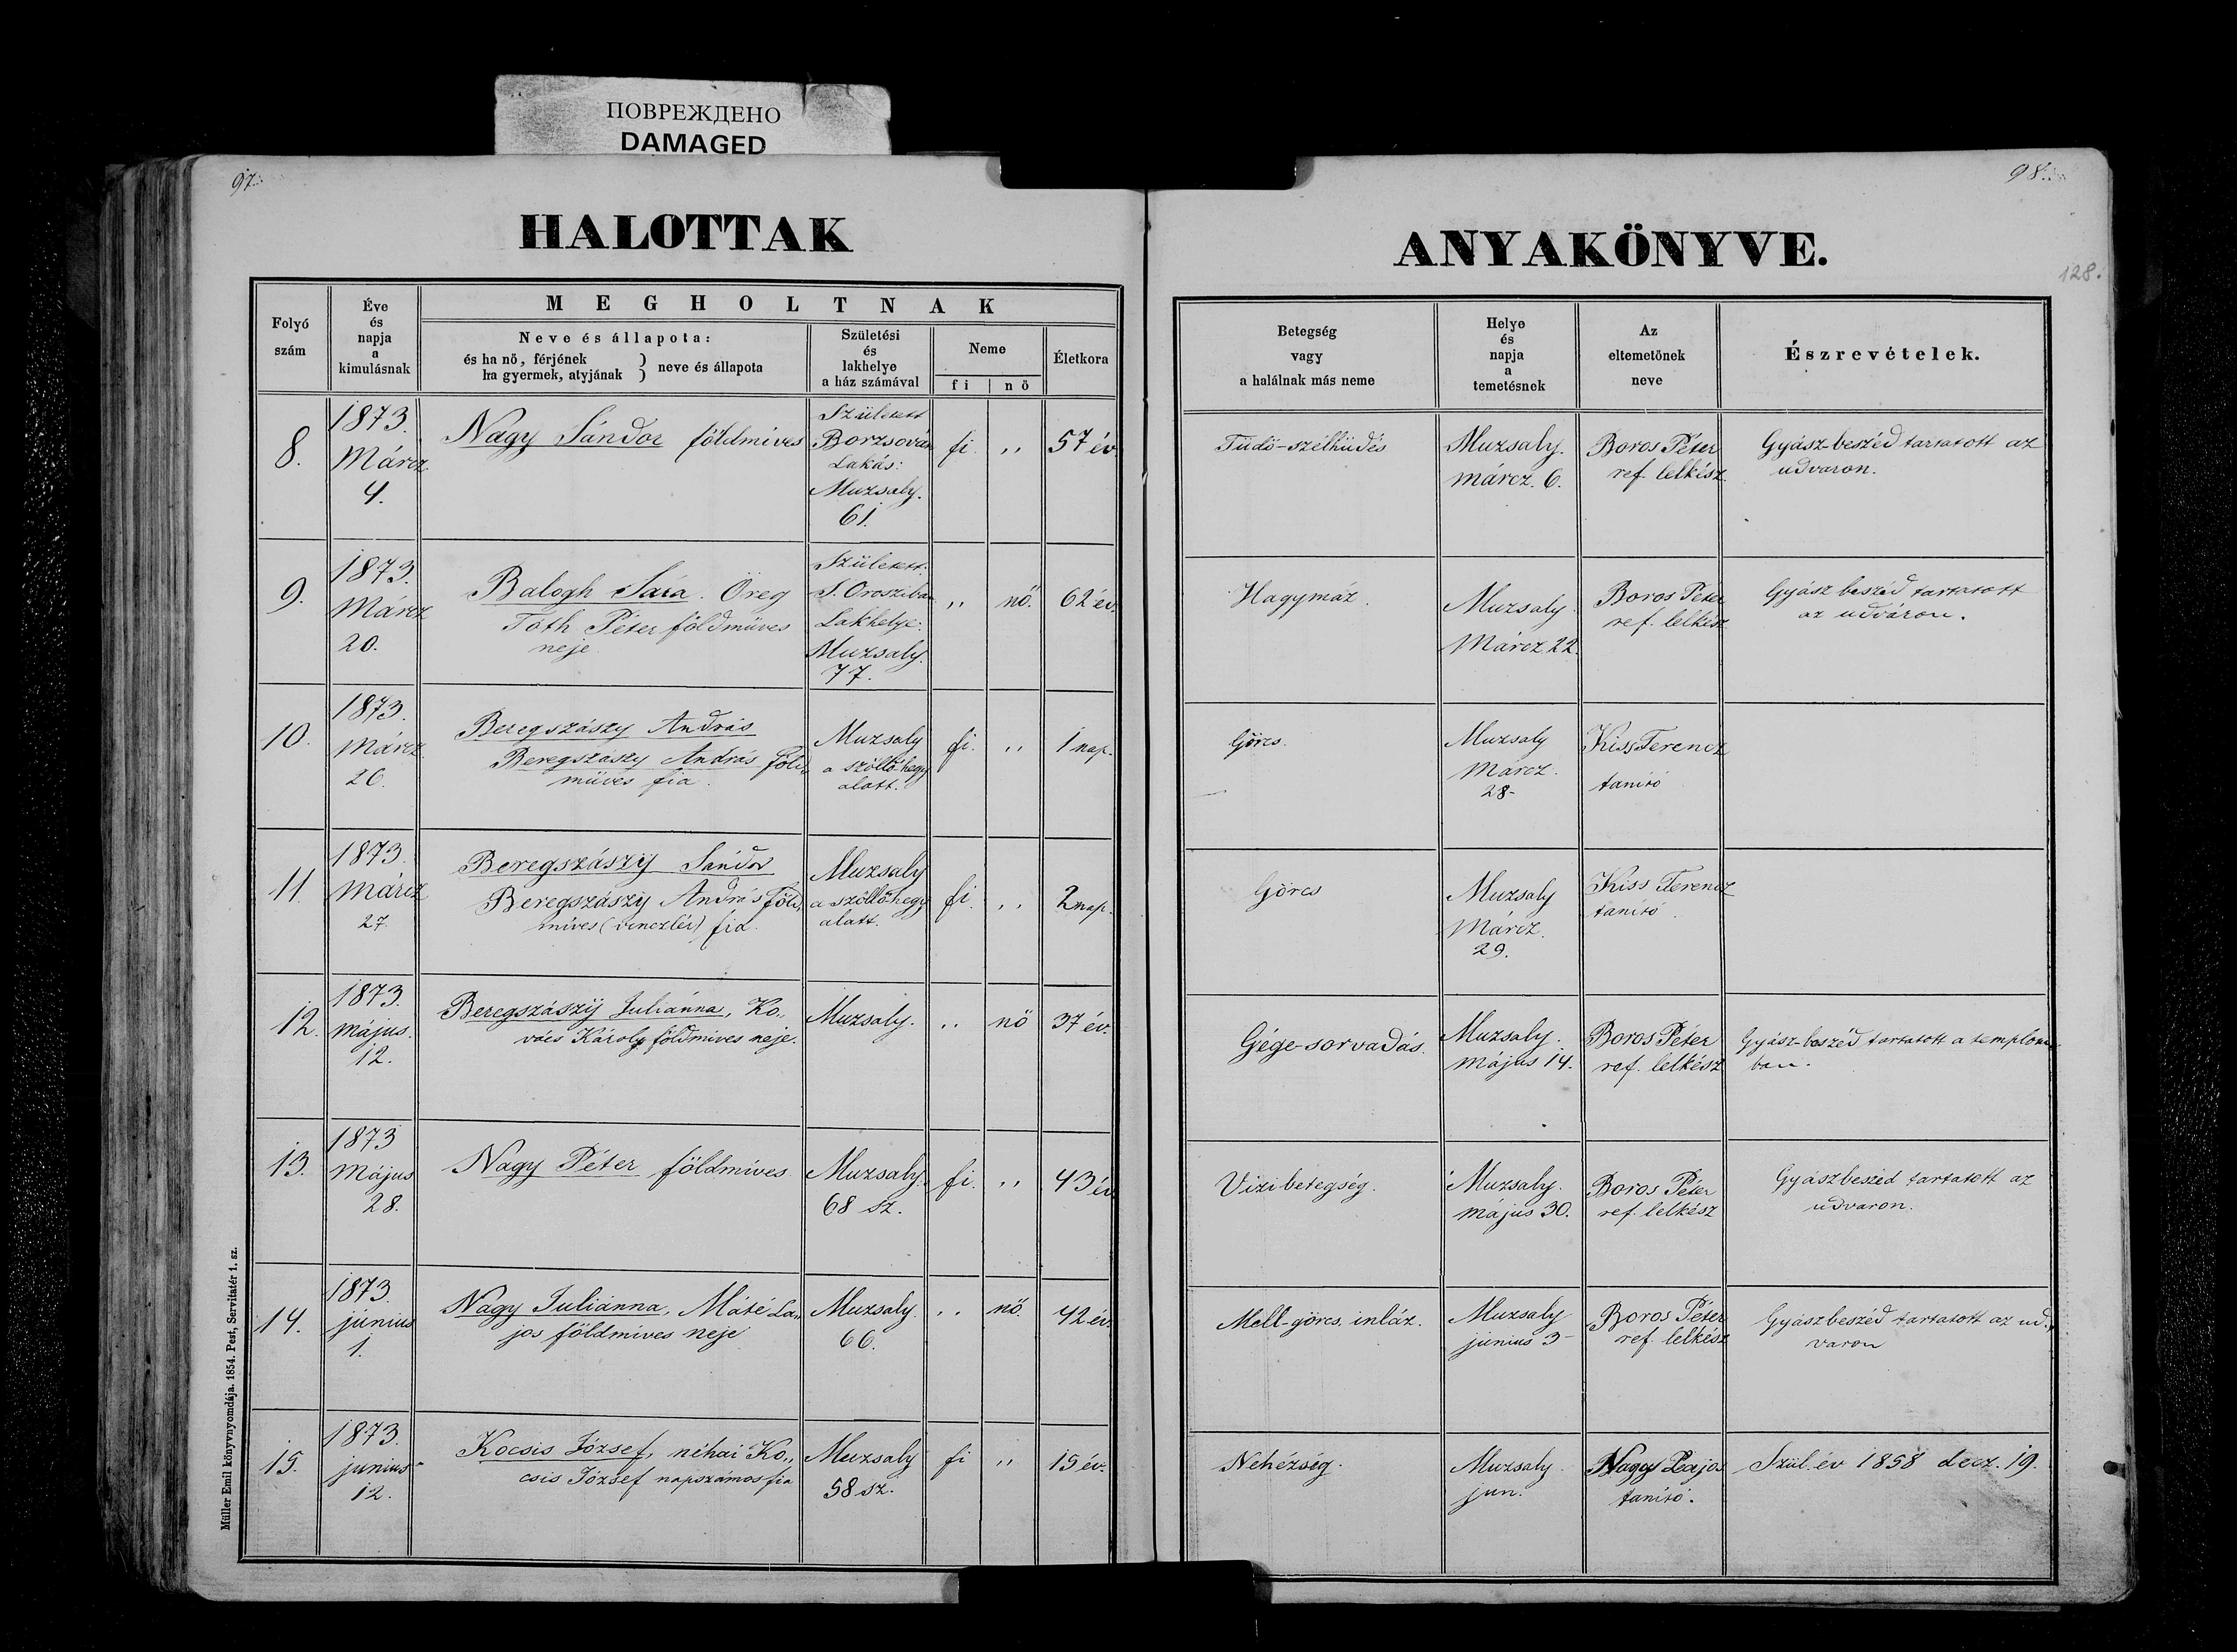 ПОВРЕЖДЕНО
DAMAGED
97.
98.
128.
HALOTTAK
ANYAKÖNYVE.
Folyó
szám
Éve
és
napja
a
kimulásnak
MEGHOLTNAK
Neve és állapota:
és ha nö, férjének
ha gyermek, atyjának } neve és állapota
Születési
és
lakhelye
a ház számával
Neme
fi | nö
Életkora
Betegség
vagy
a halálnak más neme
Helye
és
napja
a
temetésnek
Az
eltemetönek
neve
Észrevételek.
8.
1873.
Márcz.
4.
Nagy Sándor földmives
Született
Borzsován
Lakás:
Muzsaly.
61.
fi
,,
57 év
Tüdő-szélhüdés
Muzsaly.
márcz. 6.
Boros Péter
ref. lelkész.
Gyász-beszéd tartatott az
udvaron.
9.
1873.
Márcz
20.
Balogh Sára. Öreg
Tóth Péter földmüves
neje
Született.
S. Orosziban
Lakhelye:
Muzsaly.
77.
,,
nő.
62 év
Hagymáz.
Muzsaly.
Márcz. 22.
Boros Péter
ref. lelkész
Gyász beszéd tartatott
az udváron.
10.
1873.
Márcz.
26.
Beregszászy András
Beregszászy András föld,,
müves fia.
Muzsaly
a szöllőhegy
alatt.
fi.
,,
1 nap.
Görcs.
Muzsaly
Márcz.
28-
Kiss Ferencz
tanitó
11.
1873.
Márcz
27.
Beregszászy Sándor
Beregszászy András föld,,
mives (vinczlér) fia.
Muzsaly
a szöllőhegy
alatt.
fi.
,,
2 nap.
Görcs
Muzsaly
Márcz.
29.
Kiss Ferencz
tanitó.
12.
1873.
Május.
12.
Beregszászÿ Juliánna, Ko,,
vács Károly földmives neje.
Muzsaly.
,,
nő
37 év.
Gége-sorvadás.
Muzsaly.
Május 14.
Boros Péter
ref. lelkész
Gyász-beszéd tartatott a templom-
ban.
13.
1873
Május
28.
Nagy Péter földmives
Muzsaly.
68 sz.
fi.
,,
43 év
Vizibetegség.
Muzsaly.
május 30.
Boros Péter
ref. lelkész
Gyászbeszéd tartatott az
udvaron.
14.
1873.
június
1.
Nagy Juliánna, Máté La,,
jos földmives neje
Muzsaly
66.
,,
nő
42 év.
Mell-görcs. inláz.
Muzsaly
június 3-
Boros Péter
ref. lelkész
Gyászbeszéd tartatott az ud,,
varon
15.
1873.
junius
12.
Kocsis József, néhai Ko,,
csis József napszámos fia
Muzsaly
58 sz.
fi
,,
15 év.
Nehézség.
Muzsaly.
jun.
Nagy Lajos
tanitó.
Szül. év 1858 decz. 19.
Müller Emil könyvnyomdája. 1854. Pest, Servitatér 1. sz.